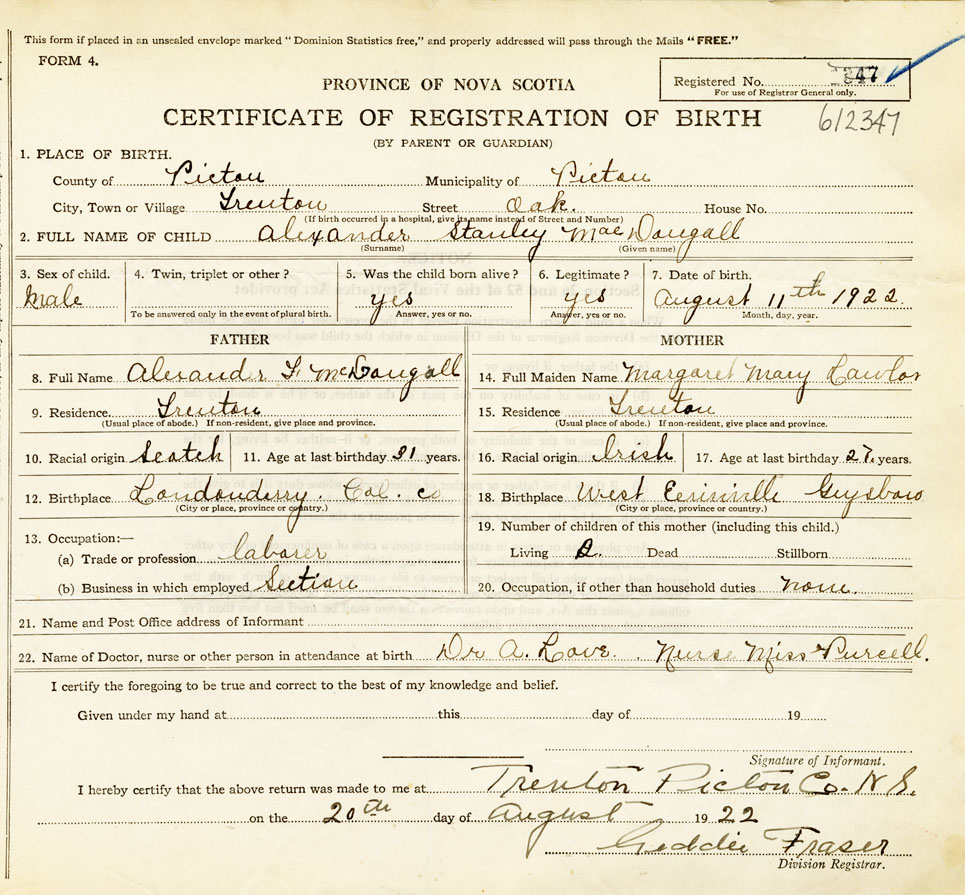 This form if placed in an unsealed envelope marked "Dominion Statistics free," and properly addressed will pass through the Mails "FREE."
FORM 4.
PROVINCE OF NOVA SCOTIA
Registered No. 347
For use of Registrar General only.
CERTIFICATE OF REGISTRATION OF BIRTH
612347
(BY PARENT OR GUARDIAN)
1. PLACE OF BIRTH.
County of Pictou Municipality of Pictou
City, Town or Village Trenton Street Oak. House No.
(If birth occurred in a hospital, give its name instead of Street and Number)
2. FULL NAME OF CHILD Alexander Stanley MacDougall
(Surname) (Given name)
3. Sex of child. 4. Twin, triplet or other? 5. Was the child born alive? 6. Legitimate? 7. Date of birth.
Male yes yes August 11th 1922.
To be answered only in the event of plural birth. Answer, yes or no. Answer, yes or no. Month, day, year.
FATHER MOTHER
8. Full Name Alexander F McDougall 14. Full Maiden Name Margaret Mary Lawlor
9. Residence. Trenton 15. Residence Trenton
(Usual place of abode.) If non-resident, give place and province. (Usual place of abode.) If non-resident, give place and province.
10. Racial origin Scotch 11. Age at last birthday 31 years. 16. Racial origin Irish 17. Age at last birthday 27 years.
12. Birthplace Londonderry. Col. co 18. Birthplace West Guysboro
(City or place, province or country.) (City or place, province or country.)
19. Number of children of this mother (including this child.)
13. Occupation:—
(a) Trade or profession laborer Living 2. Dead Stillborn
(b) Business in which employed Section 20. Occupation, if other than household duties none.
21. Name and Post Office address of Informant
22. Name of Doctor, nurse or other person in attendance at birth Dr A. Love. Nurse Miss Purcell.
I certify the foregoing to be true and correct to the best of my knowledge and belief.
Given under my hand at this day of 19
Signature of Informant.
I hereby certify that the above return was made to me at Trenton Pictou Co. N.S.
on the 20th day of August 1922
Geddie Fraser
Division Registrar.